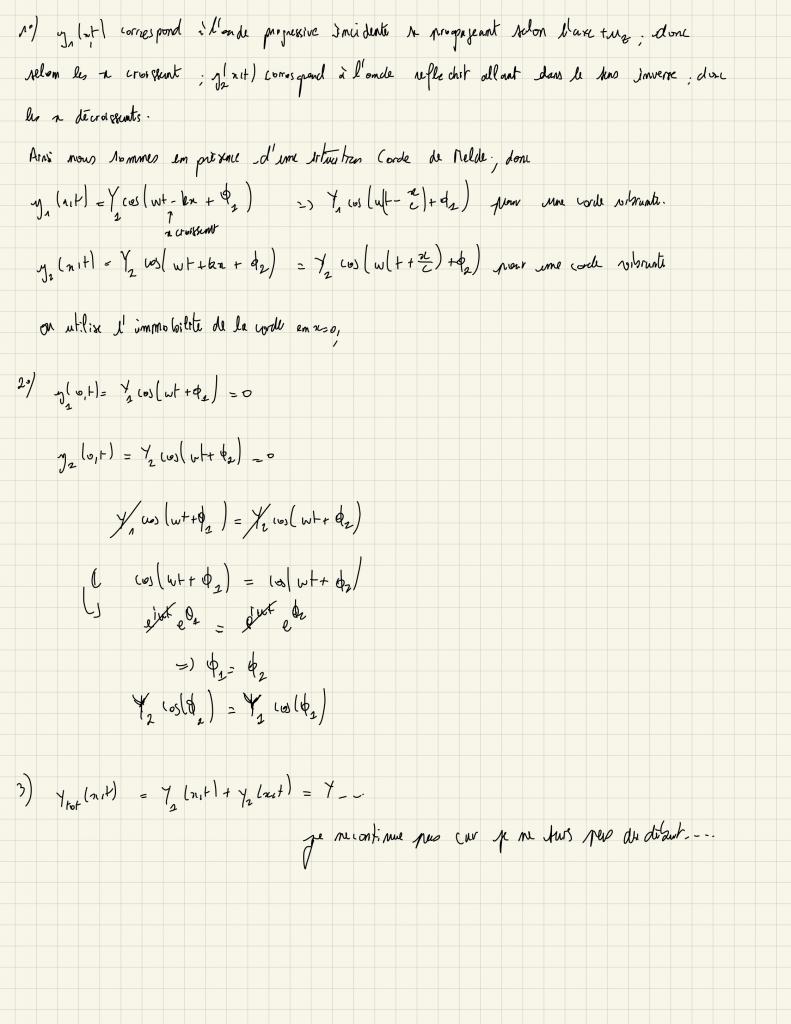 1°) y₁(x,t) correspond à l'onde progressive incidente se propageant selon l'axe +u_z ; donc
selon les x croissant ; y₂(x,t) correspond à l'onde reflechit allant dans le sens inverse ; donc
les x décroissants.
Ainsi nous sommes en présence d'une situation Corde de Melde ; donc
y₁(x,t) = Y₁ cos(wt - kx + ϕ₁) => Y₁ cos(w(t - x/c) + ϕ₁) pour une corde vibrante.
↑
x croissant
y₂(x,t) = Y₂ cos(wt + kx + ϕ₂) = Y₂ cos(w(t + x/c) + ϕ₂) pour une corde vibrante
on utilise l'immobilité de la corde en x=0,
2°) y₁(0,t) = Y₁ cos(wt + ϕ₁) = 0
y₂(0,t) = Y₂ cos(wt + ϕ₂) = 0
Y₁ cos(wt + ϕ₁) = Y₂ cos(wt + ϕ₂)
cos(wt + ϕ₁) = cos(wt + ϕ₂)
e^{jwt} e^{ϕ₁} = e^{jwt} e^{ϕ₂}
=> ϕ₁ = ϕ₂
Y₂ cos(ϕ₂) = Y₁ cos(ϕ₁)
3) Y_tot(x,t) = Y₁(x,t) + Y₂(x,t) = Y ...
je ne continue pas car je ne suis pas du début....